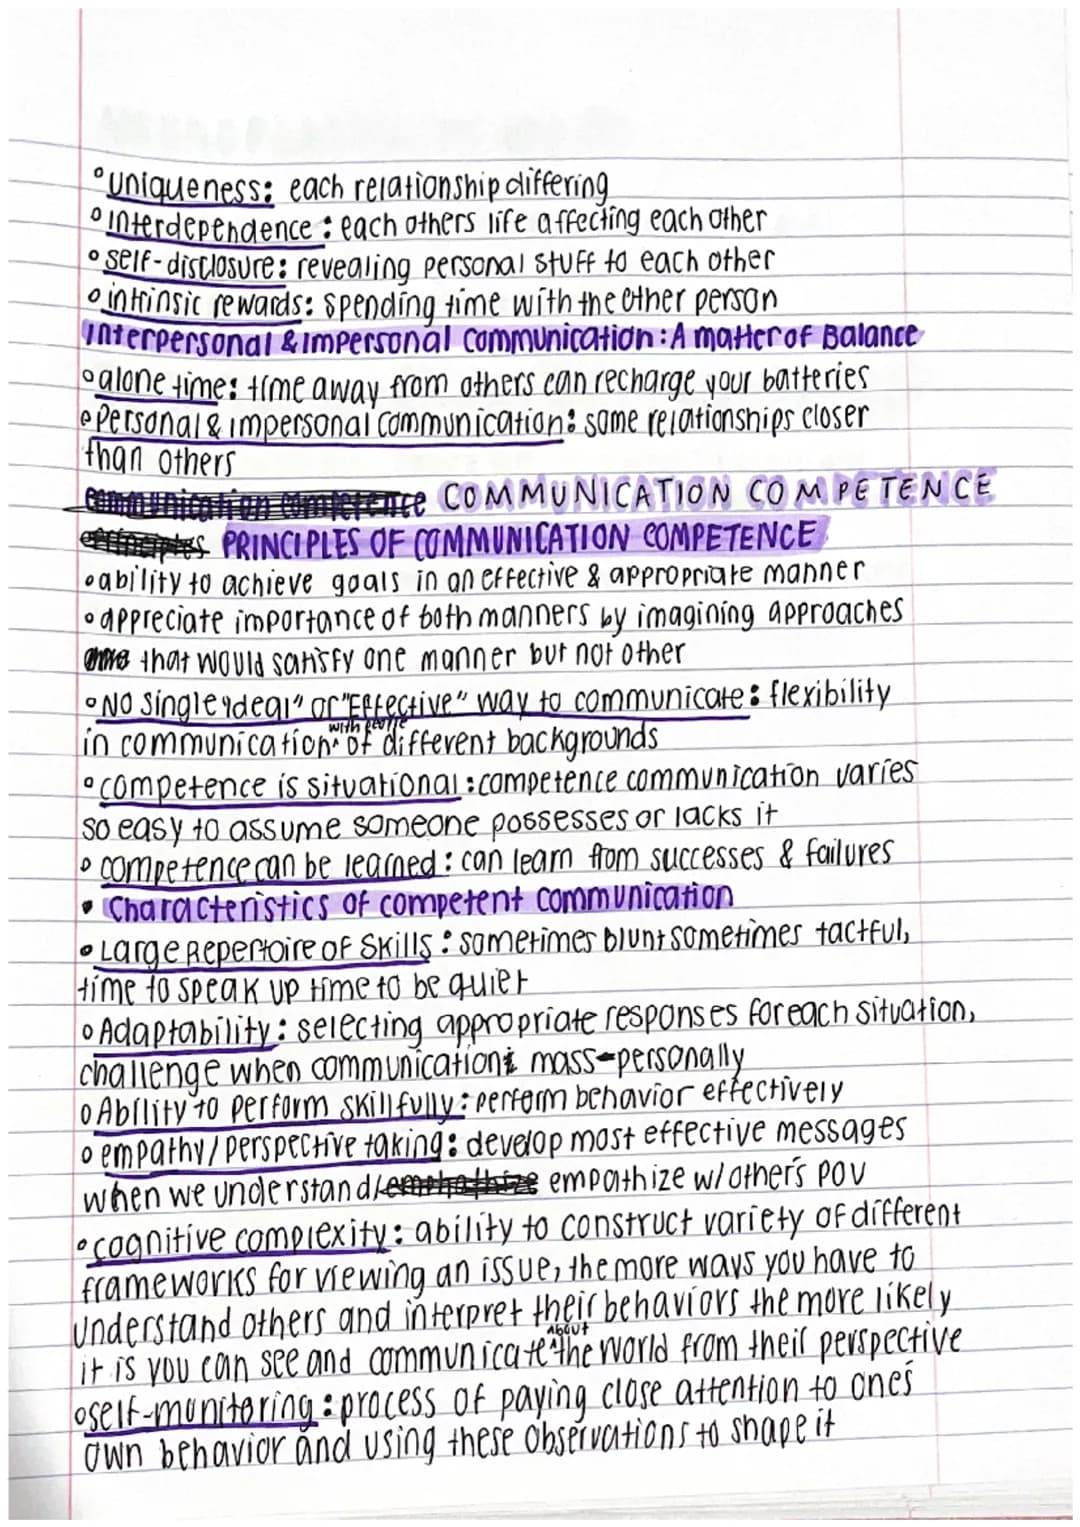 ° uniqueness: each relationship differing
° interdependence: each others life affecting each other
° self-disclosure: revealing personal stuff to each other
° intrinsic rewards: spending time with the other person
Interpersonal & impersonal communication: A matter of Balance
° alone time: time away from others can recharge your batteries
° Personal & impersonal communication: some relationships closer
than others
communication competence COMMUNICATION COMPETENCE
principles PRINCIPLES OF COMMUNICATION COMPETENCE
• ability to achieve goals in an effective & appropriate manner
• appreciate importance of both manners by imagining approaches
that would satisfy one manner but not other
° No single "ideal" or "Effective" way to communicate: flexibility
in communication with people of different backgrounds
° competence is situational: competence communication varies
so easy to assume someone possesses or lacks it
° competence can be learned: can learn from successes & failures
• Characteristics of competent communication
• Large Repertoire of Skills: sometimes blunt sometimes tactful,
time to speak up time to be quiet
° Adaptability: selecting appropriate responses for each situation,
challenge when communication mass-personally
° Ability to perform skillfully: perform behavior effectively
° empathy/perspective taking: develop most effective messages
when we understand/emphathize empathize w/ other's POV
° cognitive complexity: ability to construct variety of different
frameworks for viewing an issue, the more ways you have to
understand others and interpret their behaviors the more likely
it is you can see and communicate ABOUT the world from their perspective
° self-munitoring: process of paying close attention to one's
own behavior and using these observations to shape it